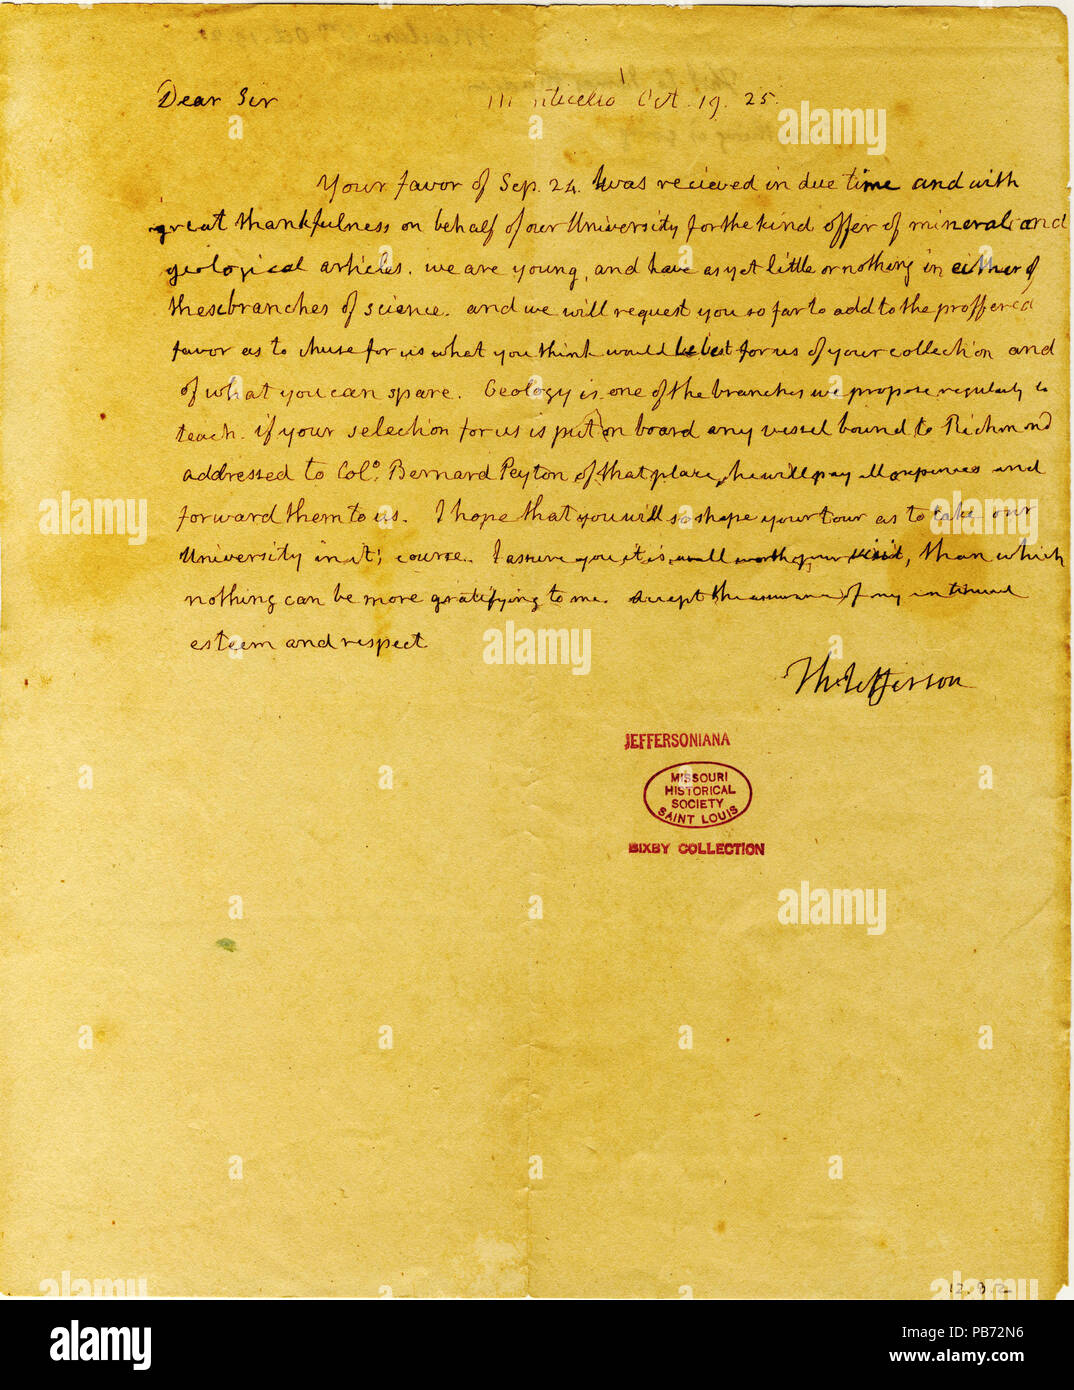 Dear Sir Monticello Oct. 19. 25.
Your favor of Sep. 24. was recieved in due time and with
great thankfulness on behalf of our University for the kind offer of mineral and
geological articles. we are young, and have as yet little or nothing in either of
these branches of science. and we will request you so far to add to the proffered
favor as to chuse for us what you think would be best for us of your collection and
of what you can spare. Geology is one of the branches we propose regularly to
teach. if your selection for us is put on board any vessel bound to Richmond
addressed to Colo. Bernard Peyton of that place, he will pay all expences and
forward them to us. I hope that you will so shape your tour as to take our
University in it's course. I assure you it is well worth your visit, than which
nothing can be more gratifying to me. Accept the assurance of my continued
esteem and respect.
Th: Jefferson
JEFFERSONIANA
MISSOURI
HISTORICAL
SOCIETY
SAINT LOUIS
BIXBY COLLECTION
alamy
Image ID: PB72N6
www.alamy.com